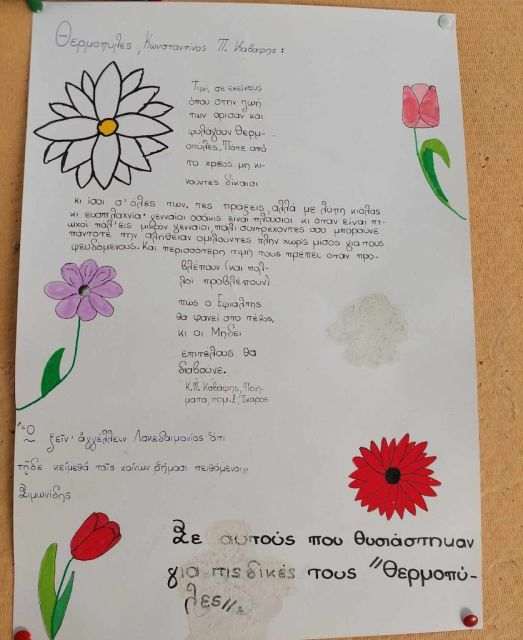 Θερμοπύλες, Κωνσταντίνος Π. Καβάφης:
Τιμή σε εκείνους
όπου στην ζωή
των όρισαν και
φυλάγουν Θερμο-
πύλες. Ποτέ από
το χρέος μη κι-
νούντες δίκαιοι
κι ίσοι σ' όλες των τες πράξεις αλλά με λύπη κιόλας
κι ευσπλαχνία· γενναίοι οσάκις είναι πλούσιοι κι όταν είναι πτ-
ωχοί πάλ' εις μικρόν γενναίοι, πάλι συντρέχοντες όσο μπορούνε
πάντοτε την αλήθειαν ομιλούντες πλην χωρίς μίσος για τους
ψευδόμενους. Και περισσότερη τιμή τους πρέπει όταν προ-
βλέπουν (και πολ-
λοί προβλέπουν)
πως ο Εφιάλτης
θα φανεί στο τέλος,
κι οι Μήδοι
επιτέλους θα
διαβούνε.
Κ.Π. Καβάφης, Ποιή-
ματα, τομ. 1, Ίκαρος
Ὦ ξεῖν' ἀγγέλλειν Λακεδαιμονίοις ὅτι
τῇδε κείμεθα τοῖς κείνων ῥήμασι πειθόμενοι
Σιμωνίδης
Σε αυτούς που θυσιάστηκαν
για τις δικές τους "Θερμοπύ-
λες"